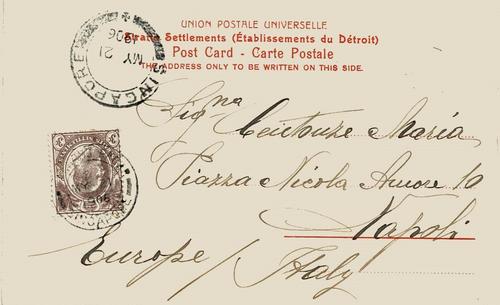 UNION POSTALE UNIVERSELLE
Straits Settlements (Établissements du Détroit)
Post Card - Carte Postale
THE ADDRESS ONLY TO BE WRITTEN ON THIS SIDE.
SINGAPORE
MY 21
1906
Signa Centonze Maria
Piazza Nicola Amore 10
Napoli
Europe / Italy